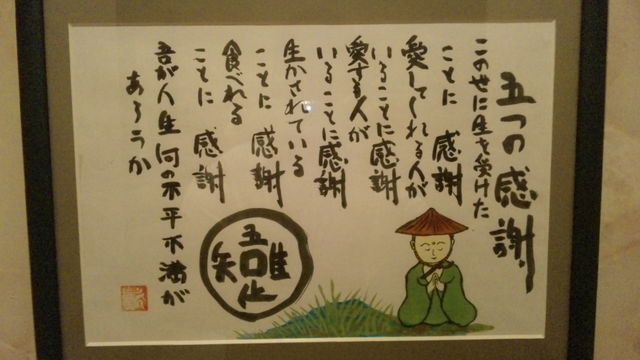 五つの感謝
この世に生を受けた
ことに 感謝
愛してくれる人が
いることに感謝
愛する人が
いることに感謝
生かされている
ことに 感謝
食べれる
ことに 感謝
吾が人生何の不平不満が
あろうか
吾唯足知